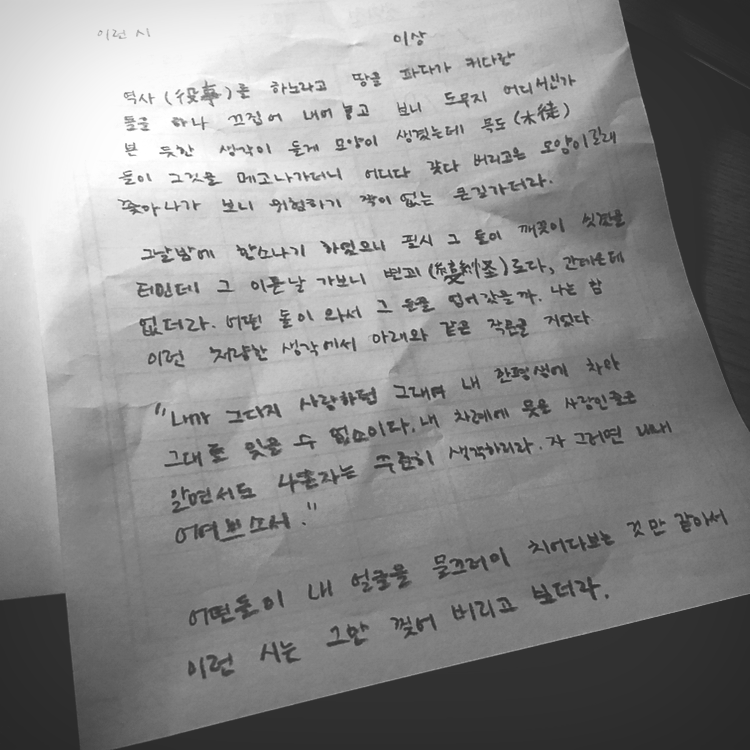 이런 시
이상
역사(役事)를 하노라고 땅을 파다가 커다란
돌을 하나 끄집어 내어 놓고 보니 도무지 어디서인가
본 듯한 생각이 들게 모양이 생겼는데 목도(木徒)
들이 그것을 메고나가더니 어디다 갖다 버리고온 모양이길래
쫓아나가 보니 위험하기 짝이 없는 큰길가더라.
그날밤에 한소나기 하였으니 필시 그 돌이 깨끗이 씻겼을
터인데 그 이튿날 가보니 변괴(變怪)로다, 간데온데
없더라. 어떤 돌이 와서 그 돌을 업어갔을까. 나는 참
이런 처량한 생각에서 아래와 같은 작문을 지었다
"내가 그다지 사랑하던 그대여 내 한평생에 차마
그대를 잊을 수 없소이다. 내 차례에 못올 사랑인줄은
알면서도 나혼자는 꾸준히 생각하리라. 자 그러면 내내
어여쁘소서."
어떤돌이 내 얼굴을 물끄러미 치어다보는 것만 같아서
이런 시는 그만 찢어 버리고 보더라.